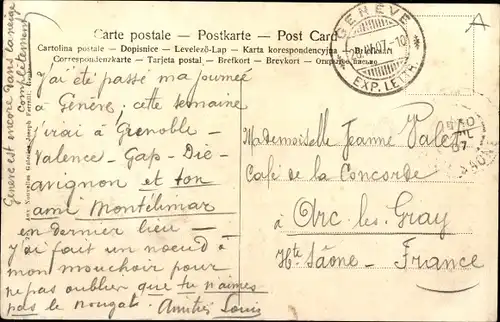 Carte postale - Postkarte - Post Card
Cartolina postale - Dopisnice - Levelező-Lap - Karta korespondencyjna - Briefkaart
Correspondenzkarte - Tarjeta postal - Brefkort - Brevkort - Открытое письмо
GENÈVE
EXP. LETTR.
A
Genève est encore dans la neige
Complètement
J'ai été passé ma journée
à Genève; cette semaine
j'irai à Grenoble -
Valence - Gap - Die -
avignon et ton
ami Montélimar
en dernier lieu -
j'ai fait un noeud à
mon mouchoir pour
ne pas oublier que tu n'aimes
pas le nougat. Amitiés Louis
Mademoiselle Jeanne
Café de la Concorde
à Arc-les-Gray
Hte Saône - France